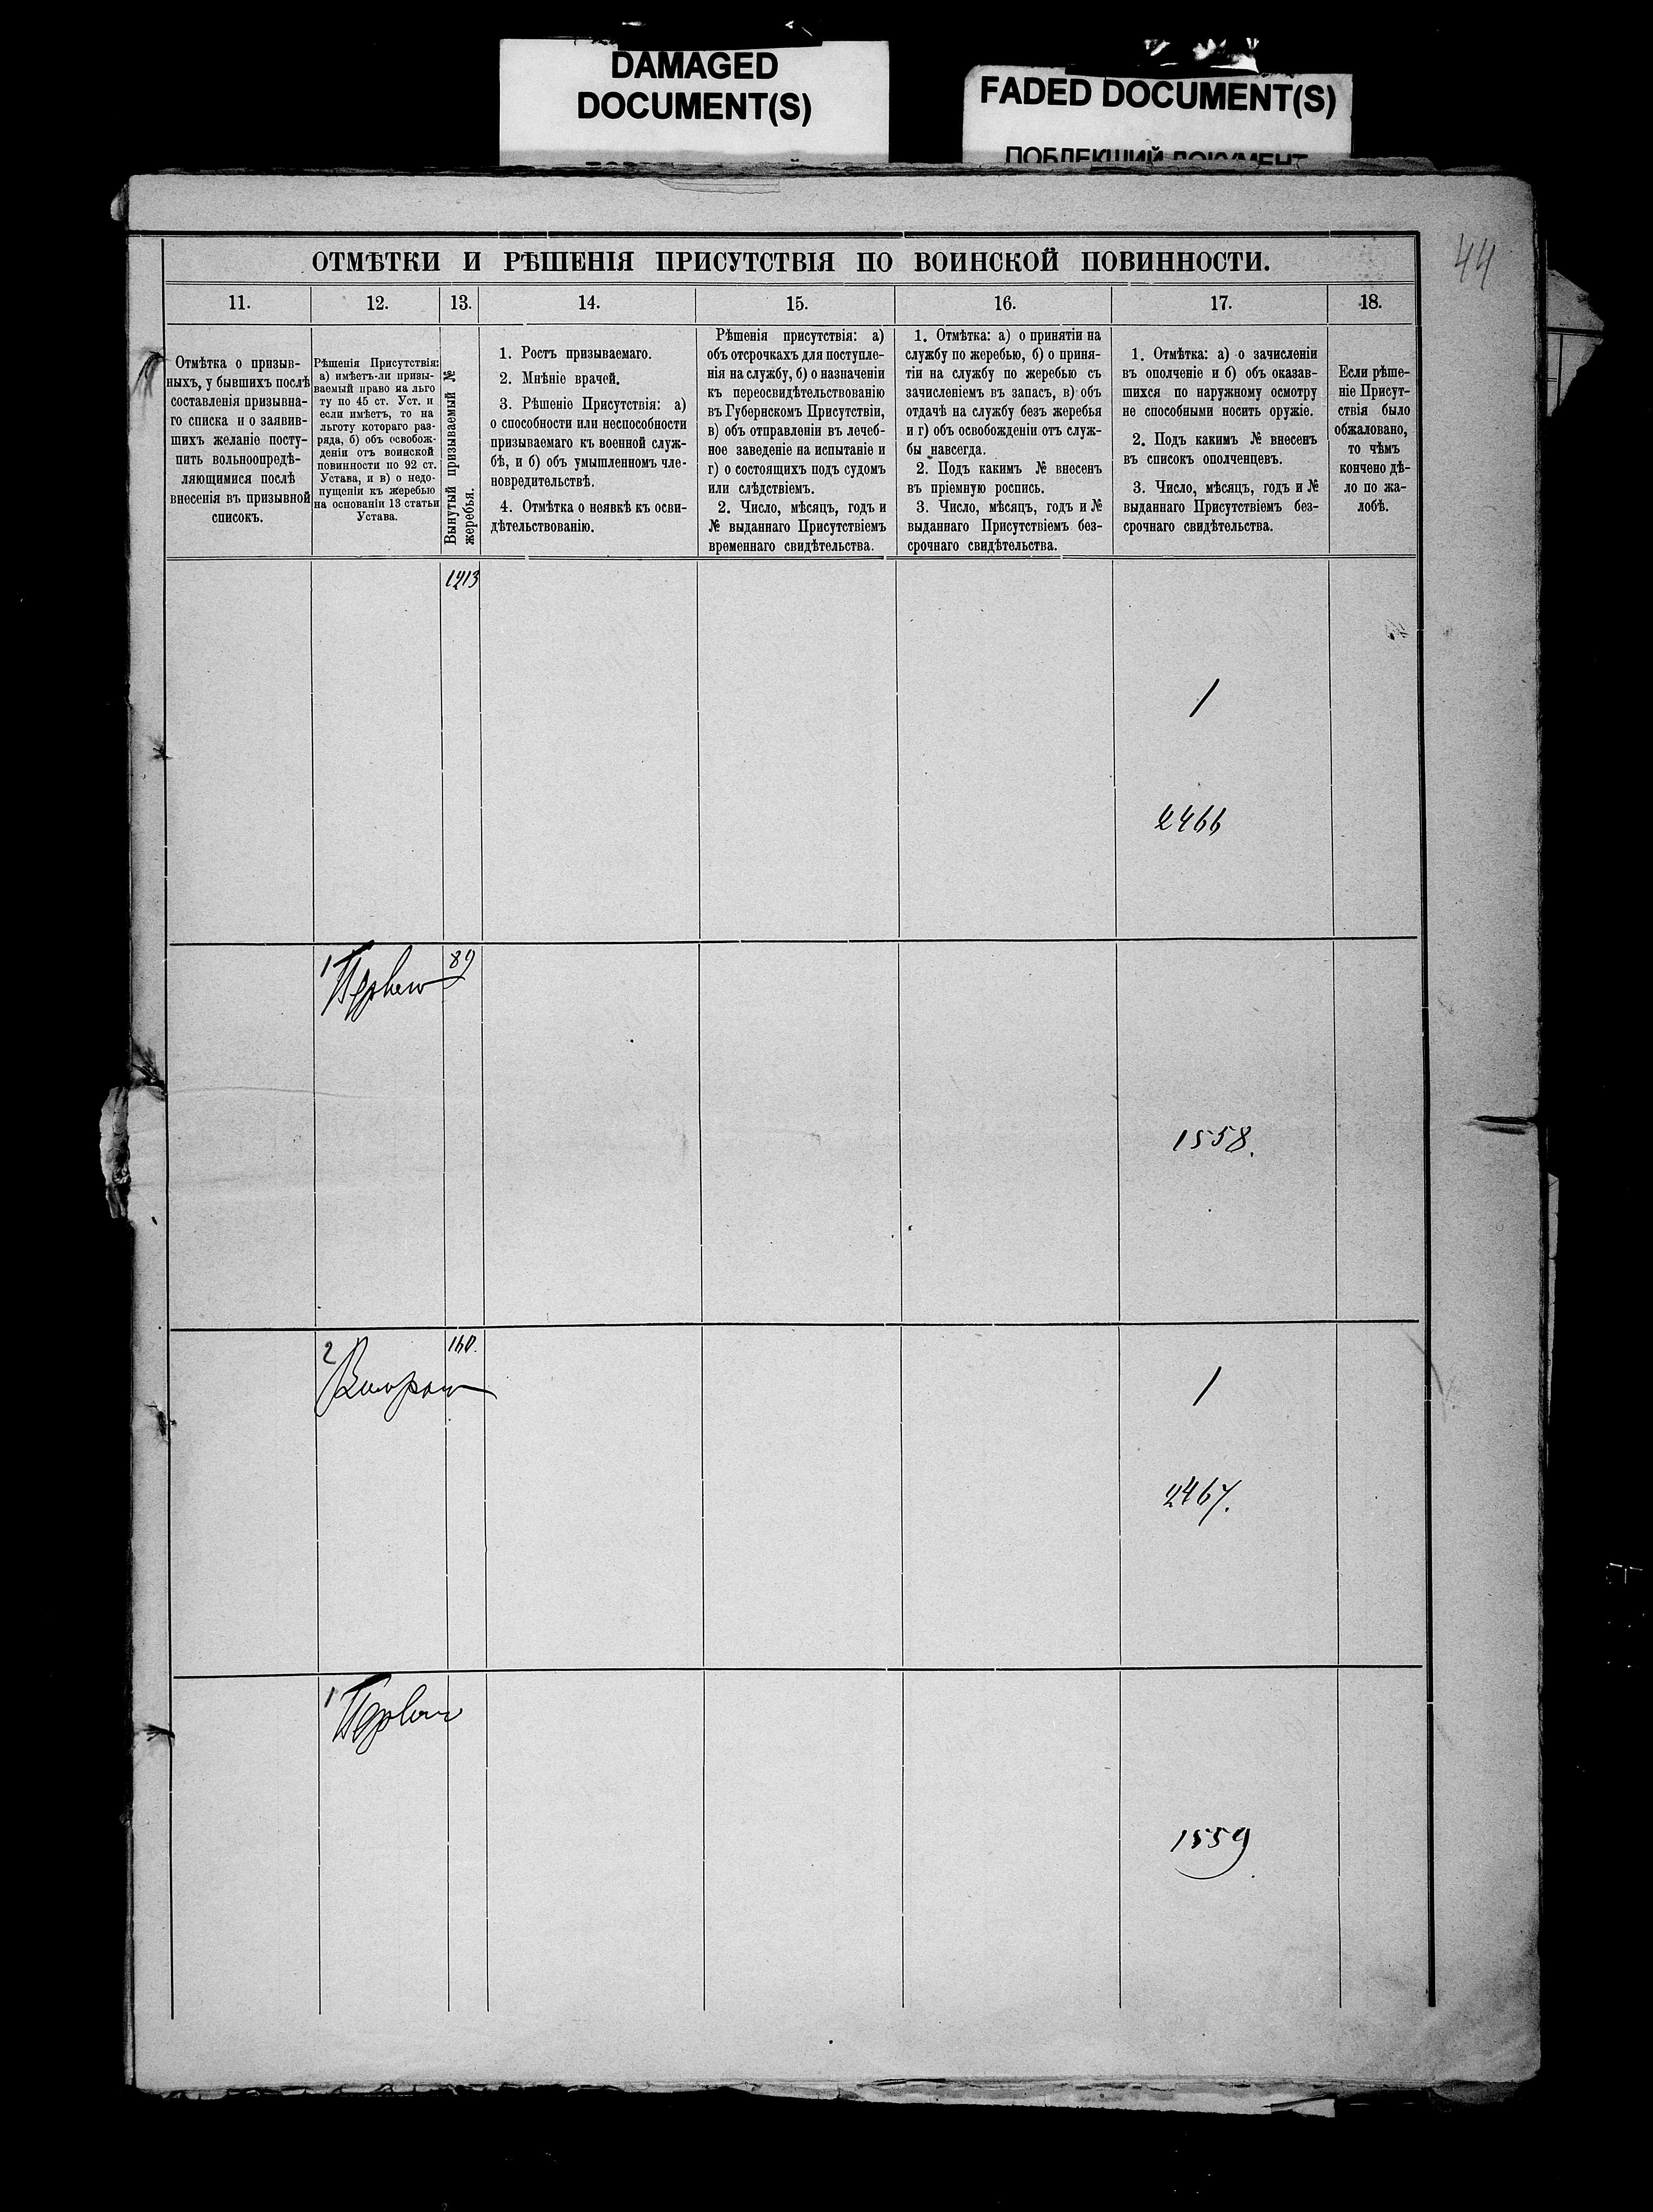 DAMAGED
DOCUMENT(S)
FADED DOCUMENT(S)
ПОБЛЕКШИЙ ДОКУМЕНТ
44
ОТМѢТКИ И РѢШЕНІЯ ПРИСУТСТВІЯ ПО ВОИНСКОЙ ПОВИННОСТИ.
11. 12. 13. 14. 15. 16. 17. 18.
Отмѣтка о призыв-
ныхъ, у бывшихъ послѣ
составленія призывна-
го списка и о заявив-
шихъ желаніе посту-
пить вольноопредѣ-
ляющимися послѣ
внесенія въ призывной
списокъ.
Рѣшенія Присутствія:
а) имѣетъ-ли призы-
ваемый право на льго
ту по 45 ст. Уст. и
если имѣетъ, то на
льготу котораго раз-
ряда, б) объ освобож-
деніи отъ воинской
повинности по 92 ст.
Устава, и в) о недо-
пущеніи къ жеребью
на основаніи 13 статьи
Устава.
Вынутый призываемый №
жеребья.
1. Ростъ призываемаго.
2. Мнѣніе врачей.
3. Рѣшеніе Присутствія: а)
о способности или неспособности
призываемаго къ военной служ-
бѣ, и б) объ умышленномъ чле-
новредительствѣ.
4. Отмѣтка о неявкѣ къ осви-
дѣтельствованію.
Рѣшенія присутствія: а)
объ отсрочкахъ для поступле-
нія на службу, б) о назначеніи
къ переосвидѣтельствованію
въ Губернскомъ Присутствіи,
в) объ отправленіи въ лечеб-
ное заведеніе на испытаніе и
г) о состоящихъ подъ судомъ
или слѣдствіемъ.
2. Число, мѣсяцъ, годъ и
№ выданнаго Присутствіемъ
временнаго свидѣтельства.
1. Отмѣтка: а) о принятіи на
службу по жеребью, б) о приня-
тіи на службу по жеребью съ
зачисленіемъ въ запасъ, в) объ
отдачѣ на службу безъ жеребья
и г) объ освобожденіи отъ служ-
бы навсегда.
2. Подъ какимъ № внесенъ
въ пріемную роспись.
3. Число, мѣсяцъ, годъ и №
выданнаго Присутствіемъ без-
срочнаго свидѣтельства.
1. Отмѣтка: а) о зачисленіи
въ ополченіе и б) объ оказав-
шихся по наружному осмотру
не способными носить оружіе.
2. Подъ какимъ № внесенъ
въ списокъ ополченцевъ.
3. Число, мѣсяцъ, годъ и №
выданнаго Присутствіемъ без-
срочнаго свидѣтельства.
Если рѣше-
ніе Присут-
ствія было
обжаловано,
то чѣмъ
кончено дѣ-
ло по жа-
лобѣ.
1213
1
2466
1 89
Первой
1558.
2 160.
Второй
1
2467.
1
Первой
1559